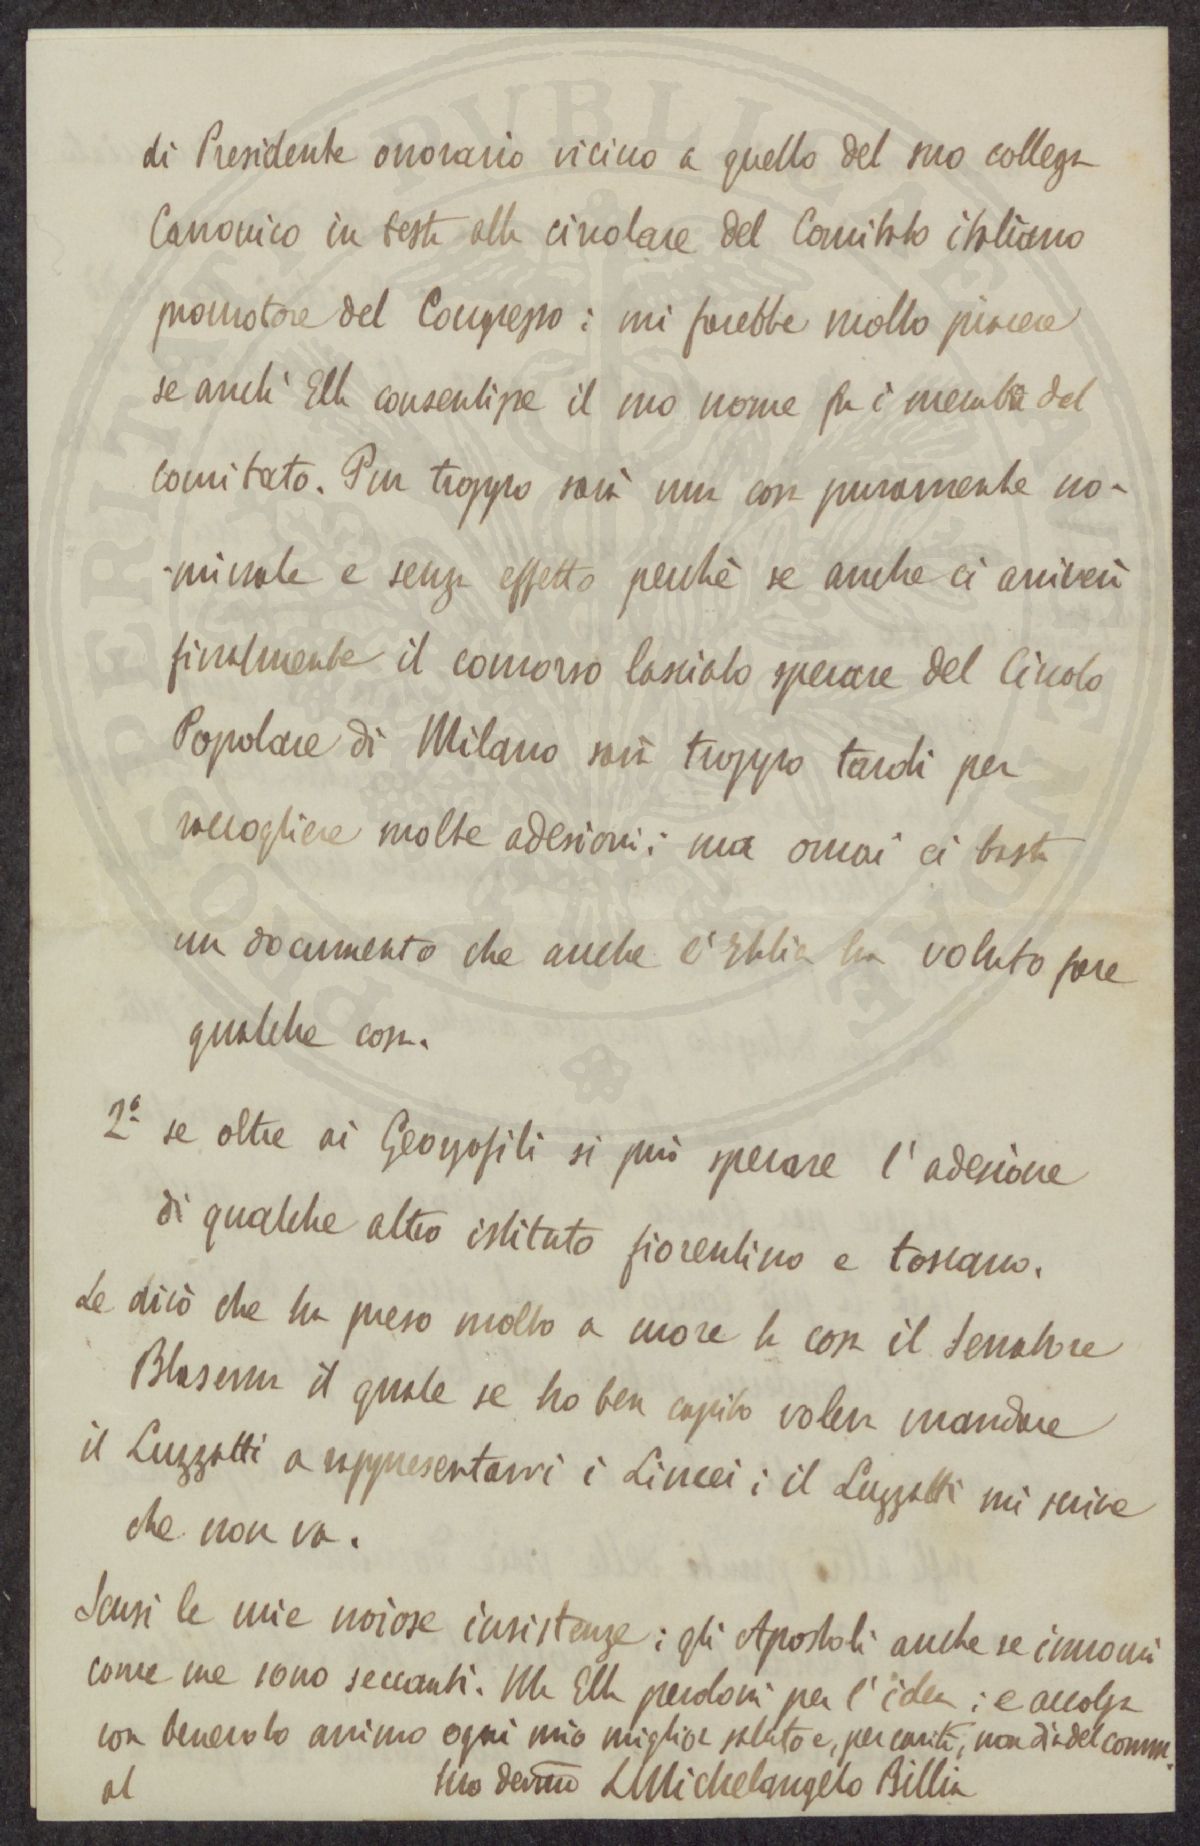 di Presidente onorario vicino a quello del suo collega
Canonico in testa alla circolare del Comitato italiano
promotore del Congresso: mi farebbe molto piacere
se anch' Ella consentisse il suo nome fra i membri del
comitato. Pur troppo sarà una cosa puramente no-
-minale e senza effetto perchè se anche ci arriverà
finalmente il concorso lasciato sperare del Circolo
Popolare di Milano sarà troppo tardi per
raccogliere molte adesioni; ma omai ci basta
un documento che anche l'Italia ha voluto fare
qualche cosa.
2º se oltre ai Georgofili si può sperare l'adesione
di qualche altro istituto fiorentino e toscano.
Le dirò che ha preso molto a cuore la cosa il Senatore
Blaserna il quale se ho ben capito voleva mandare
il Luzzatti a rappresentarvi i Lincei; il Luzzatti mi scrive
che non va.
Scusi le mie noiose insistenze; gli Apostoli anche se
come me sono seccanti. Ma Ella perdoni per l'idea; e accolga
con benevolo animo ogni mio miglior saluto e, per carità, non dia del comm.
al suo devmo LMichelangelo Billia
PROSPERITATI PVBLICAE